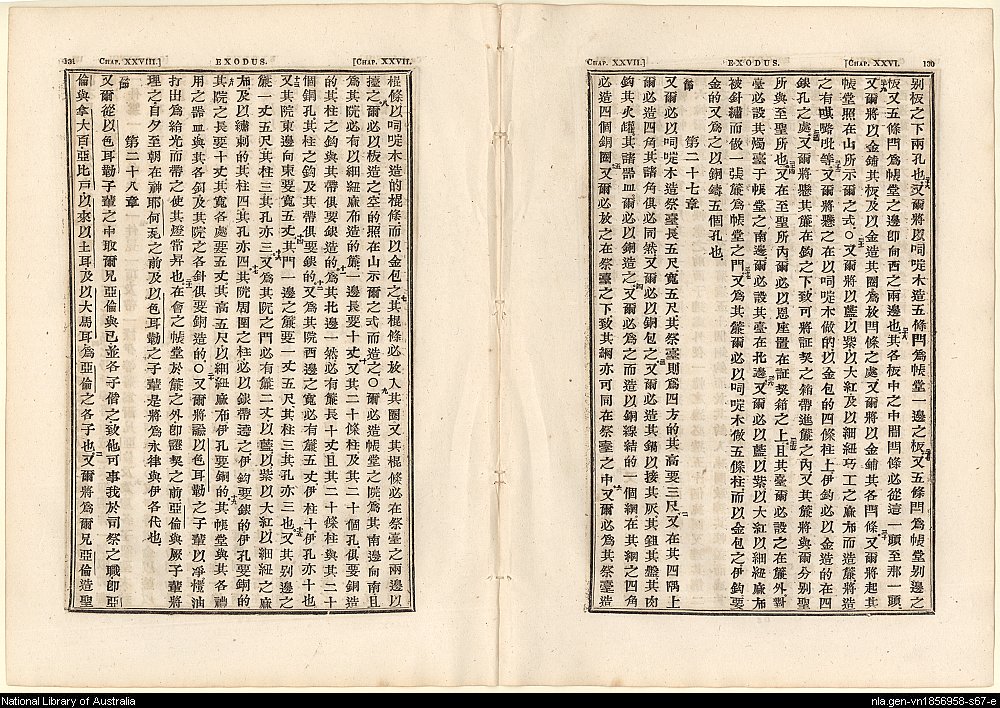 CHAP. XXVII.] EXODUS. [CHAP. XXVI. 130
别板之下兩孔也又爾將以呞啶木造五條閂為帳堂一邊之板又五條閂為帳堂别邊之
板又五條閂為帳堂之邊即向西之兩邊也其各板中之中間閂條必從這一頭至那一頭
又爾將以金鋪其板及以金造其圈為放閂條之處又爾將以金鋪其各閂條又爾將起其
帳堂照在山所示爾之式○又爾將以藍以紫以大紅及以細紐巧工之麻布而造簾將造
之有等又爾將懸之在以呞啶木做的以金包的四條柱上伊鈎必以金造的在四
銀孔之處又爾將懸其簾在鈎之下致可將証契之箱帶進簾之內又其簾將與爾分别聖
所與至聖所也又在至聖所內爾必以恩座置在証契箱之上且其臺爾必設之在簾外對
臺必設其燭臺于帳堂之南邊爾必設其臺在北邊又爾必以藍以紫以大紅以細紐麻布
被針繡而做一張簾為帳堂之門又為其簾爾必以呞啶木做五條柱而以金包之伊鈎要
金的又為之以銅鑄五個孔也
第二十七章
又爾必以呞啶木造祭臺長五尺寬五尺其祭臺則為四方的其高要三尺又在其四隅上
爾必造四角其諸角俱必同然又爾必以銅包之又爾必造其鍋以接其灰其鈕其盤其肉
鈎其火罐其諸器皿爾必以銅造之又爾必為之而造以銅線結的一個網在其網之四角
必造四個銅圈又爾必放之在祭臺之下致其網亦可同在祭臺之中又爾必為其祭臺造
131 CHAP. XXVIII.] EXODUS. [CHAP. XXVII.
棍條以呞啶木造的棍條而以金包之其棍條必放入其圈又其棍條必在祭臺之兩邊以
擡之爾必以板造之空的照在山示爾之式而造之○爾必造帳堂之院為其南邊向南且
為其院必有以細紐麻布造的簾一邊長要十丈又其二十條柱及其二十個孔俱要銅造
的其柱之鈎與其帶俱要銀造的為其北邊一然必有簾長十丈且其二十條柱與其二十
個銅孔其柱之鈎及其帶俱要銀的又為其院西邊之寬必有簾五丈伊柱十伊孔亦十也
又其院東邊向東要寬五丈其門一邊之簾要一丈五尺其柱三其孔亦三也又其别邊之
簾一丈五尺其柱三其孔亦三又為其院之門必有簾二丈以藍以紫以大紅以細紐之麻
布及以繡刺的其柱四其孔亦四其院周圍之柱必以銀帶邊之伊鈎要銀的伊孔要銅的
其院之長要十丈其寬各處要五丈其高五尺以細紐麻布伊孔要銅的其帳堂與其各禮
用之器皿與其各釘及其院之各針俱要銅造的○又爾將諭以色耳勒之子輩以凈欖油
打出為給光而帶之使其燈常昇也在會之帳堂於簾之外即證契之前亞倫與厥子輩將
理之自夕至朝在神耶何華之前及以色耳勒之子輩是將為永律與伊各代也
第二十八章
又爾從以色耳勒子輩之中取爾兄亞倫與已並各子偕之致他可事我於司祭之職即亞
倫與拿大百亞比户以來以土耳及以大馬耳為亞倫之各子也又爾將為爾兄亞倫造聖
National Library of Australia
nla.gen-vn1856958-s67-e